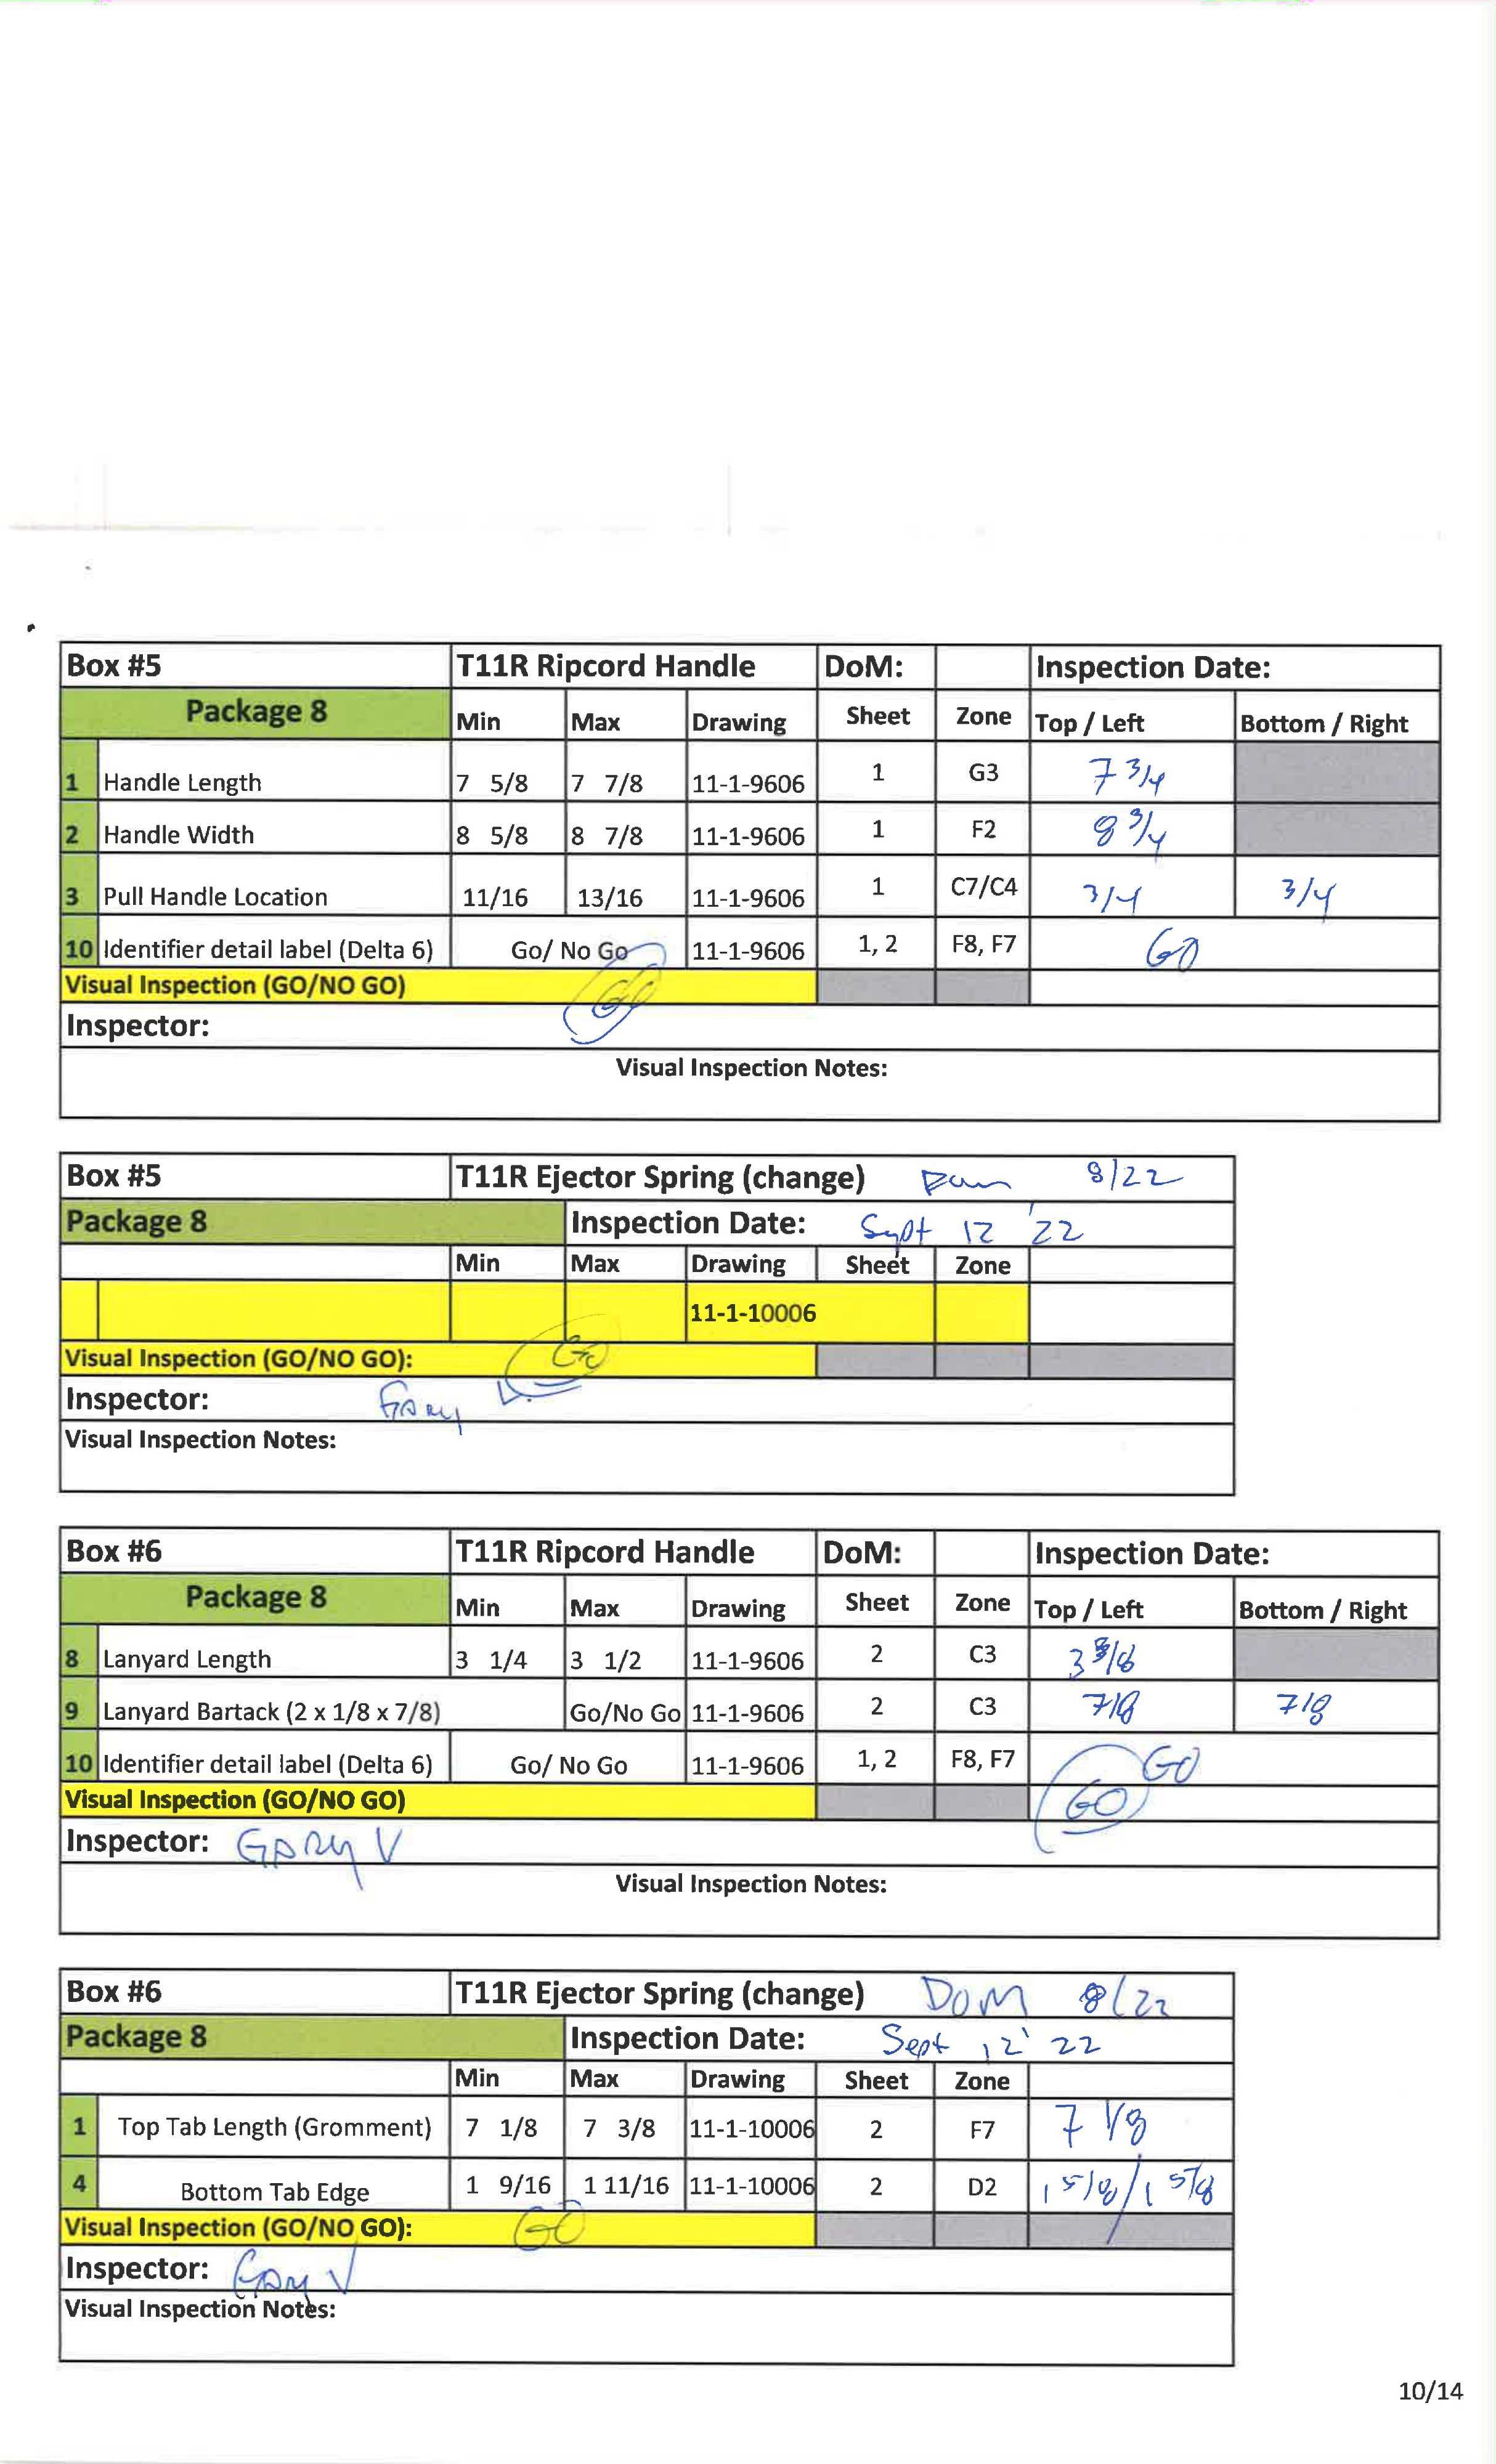 Box #5 T11R Ripcord Handle DoM: Inspection Date:
Package 8 Min Max Drawing Sheet Zone Top / Left Bottom / Right
1 Handle Length 7 5/8 7 7/8 11-1-9606 1 G3 7 3/4
2 Handle Width 8 5/8 8 7/8 11-1-9606 1 F2 8 3/4
3 Pull Handle Location 11/16 13/16 11-1-9606 1 C7/C4 3/4 3/4
10 Identifier detail label (Delta 6) Go/ No Go 11-1-9606 1, 2 F8, F7 GO
Visual Inspection (GO/NO GO) GO
Inspector:
Visual Inspection Notes:
Box #5 T11R Ejector Spring (change) 8/22
Package 8 Inspection Date: Sept 12 '22
Min Max Drawing Sheet Zone
11-1-10006
Visual Inspection (GO/NO GO): GO
Inspector: Gary V.
Visual Inspection Notes:
Box #6 T11R Ripcord Handle DoM: Inspection Date:
Package 8 Min Max Drawing Sheet Zone Top / Left Bottom / Right
8 Lanyard Length 3 1/4 3 1/2 11-1-9606 2 C3 3 3/8
9 Lanyard Bartack (2 x 1/8 x 7/8) Go/No Go 11-1-9606 2 C3 7/8 7/8
10 Identifier detail label (Delta 6) Go/ No Go 11-1-9606 1, 2 F8, F7 GO
Visual Inspection (GO/NO GO) GO
Inspector: Gary V
Visual Inspection Notes:
Box #6 T11R Ejector Spring (change) DOM 8/22
Package 8 Inspection Date: Sept 12' 22
Min Max Drawing Sheet Zone
1 Top Tab Length (Gromment) 7 1/8 7 3/8 11-1-10006 2 F7 7 1/8
4 Bottom Tab Edge 1 9/16 1 11/16 11-1-10006 2 D2 1 5/8 / 1 5/8
Visual Inspection (GO/NO GO): GO
Inspector: Gary V
Visual Inspection Notes:
10/14